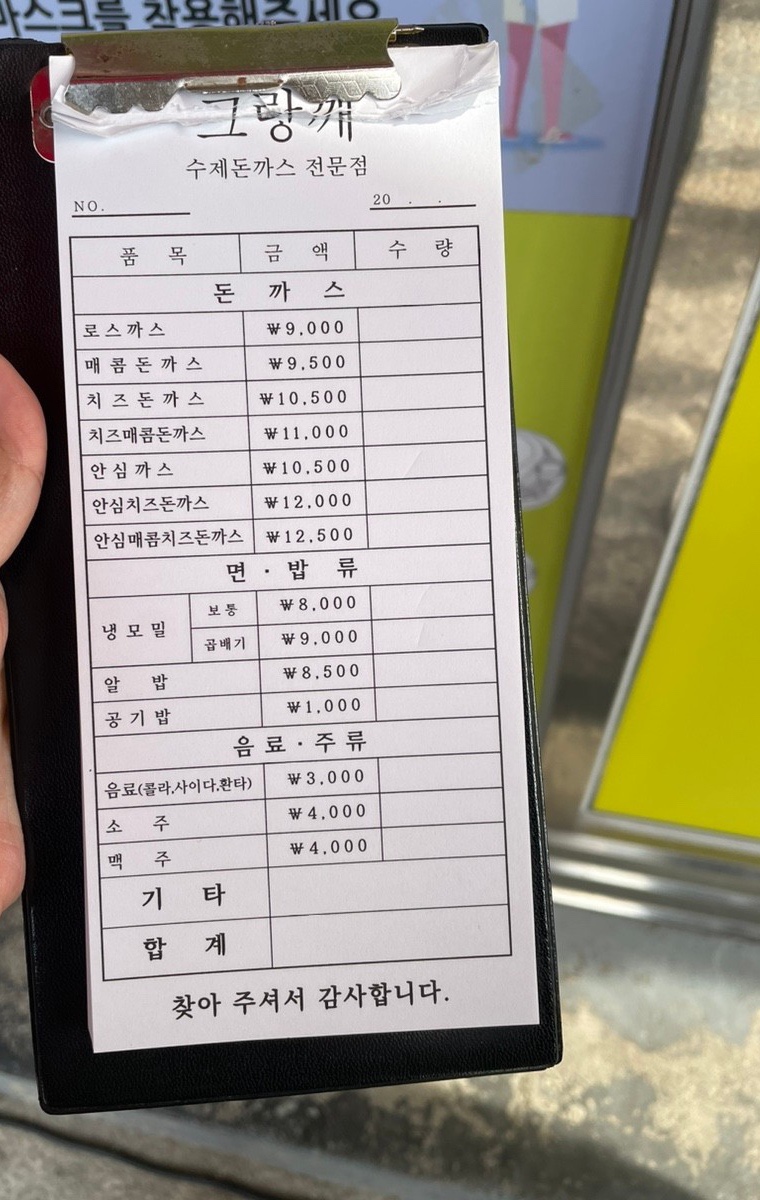 마스크를 착용해주세요
그랑깨
수제돈까스 전문점
NO. 20 . .
품 목 금 액 수 량
돈 까 스
로스까스 ₩9,000
매콤돈까스 ₩9,500
치즈돈까스 ₩10,500
치즈매콤돈까스 ₩11,000
안심까스 ₩10,500
안심치즈돈까스 ₩12,000
안심매콤치즈돈까스 ₩12,500
면 · 밥 류
냉모밀 보통 ₩8,000
곱배기 ₩9,000
알 밥 ₩8,500
공기밥 ₩1,000
음료 · 주류
음료(콜라,사이다,환타) ₩3,000
소 주 ₩4,000
맥 주 ₩4,000
기 타
합 계
찾아 주셔서 감사합니다.